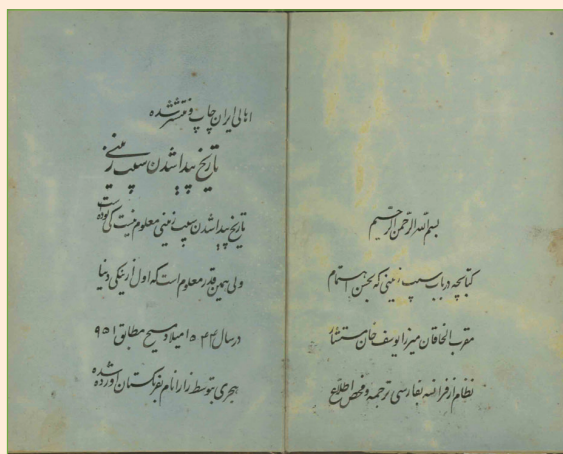 بسم الله الرحمن الرحیم
کتابچه در باب سیب زمینی که بحسن اهتمام
مقرب الخاقان میرزا یوسف خان مستشار
نظام از فرانسه بفارسی ترجمه و محض اطلاع
اهالی ایران چاپ و منتشر شده
تاریخ پیدا شدن سیب زمینی
تاریخ پیدا شدن سیب زمینی معلوم نیست کی بوده است
ولی همین قدر معلوم است که اول از ینکی دنیا
در سال ۱۵۴۳ میلاد مسیح مطابق ۹۵۱
هجری بتوسط زارا نام بفرنگستان آورده شده